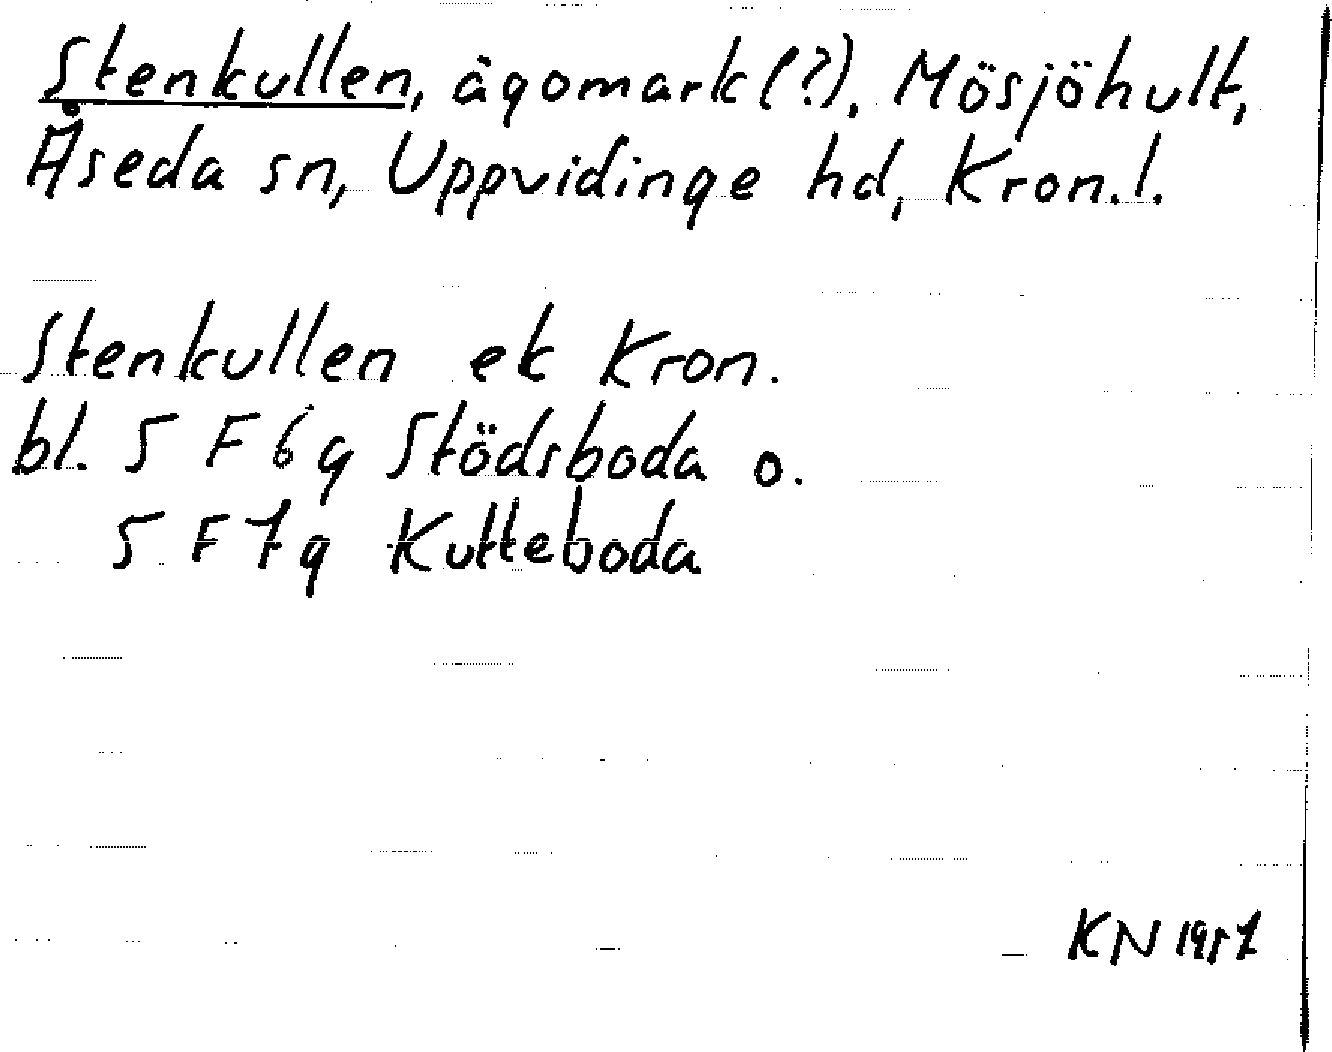 Stenkullen, ägomark (?), Mösjöhult,
Åseda sn, Uppvidinge hd, Kron. l.
Stenkullen ek Kron.
bl. 5 F 6 g Stödsboda o.
5 F 7 g Kutteboda
KN 1957